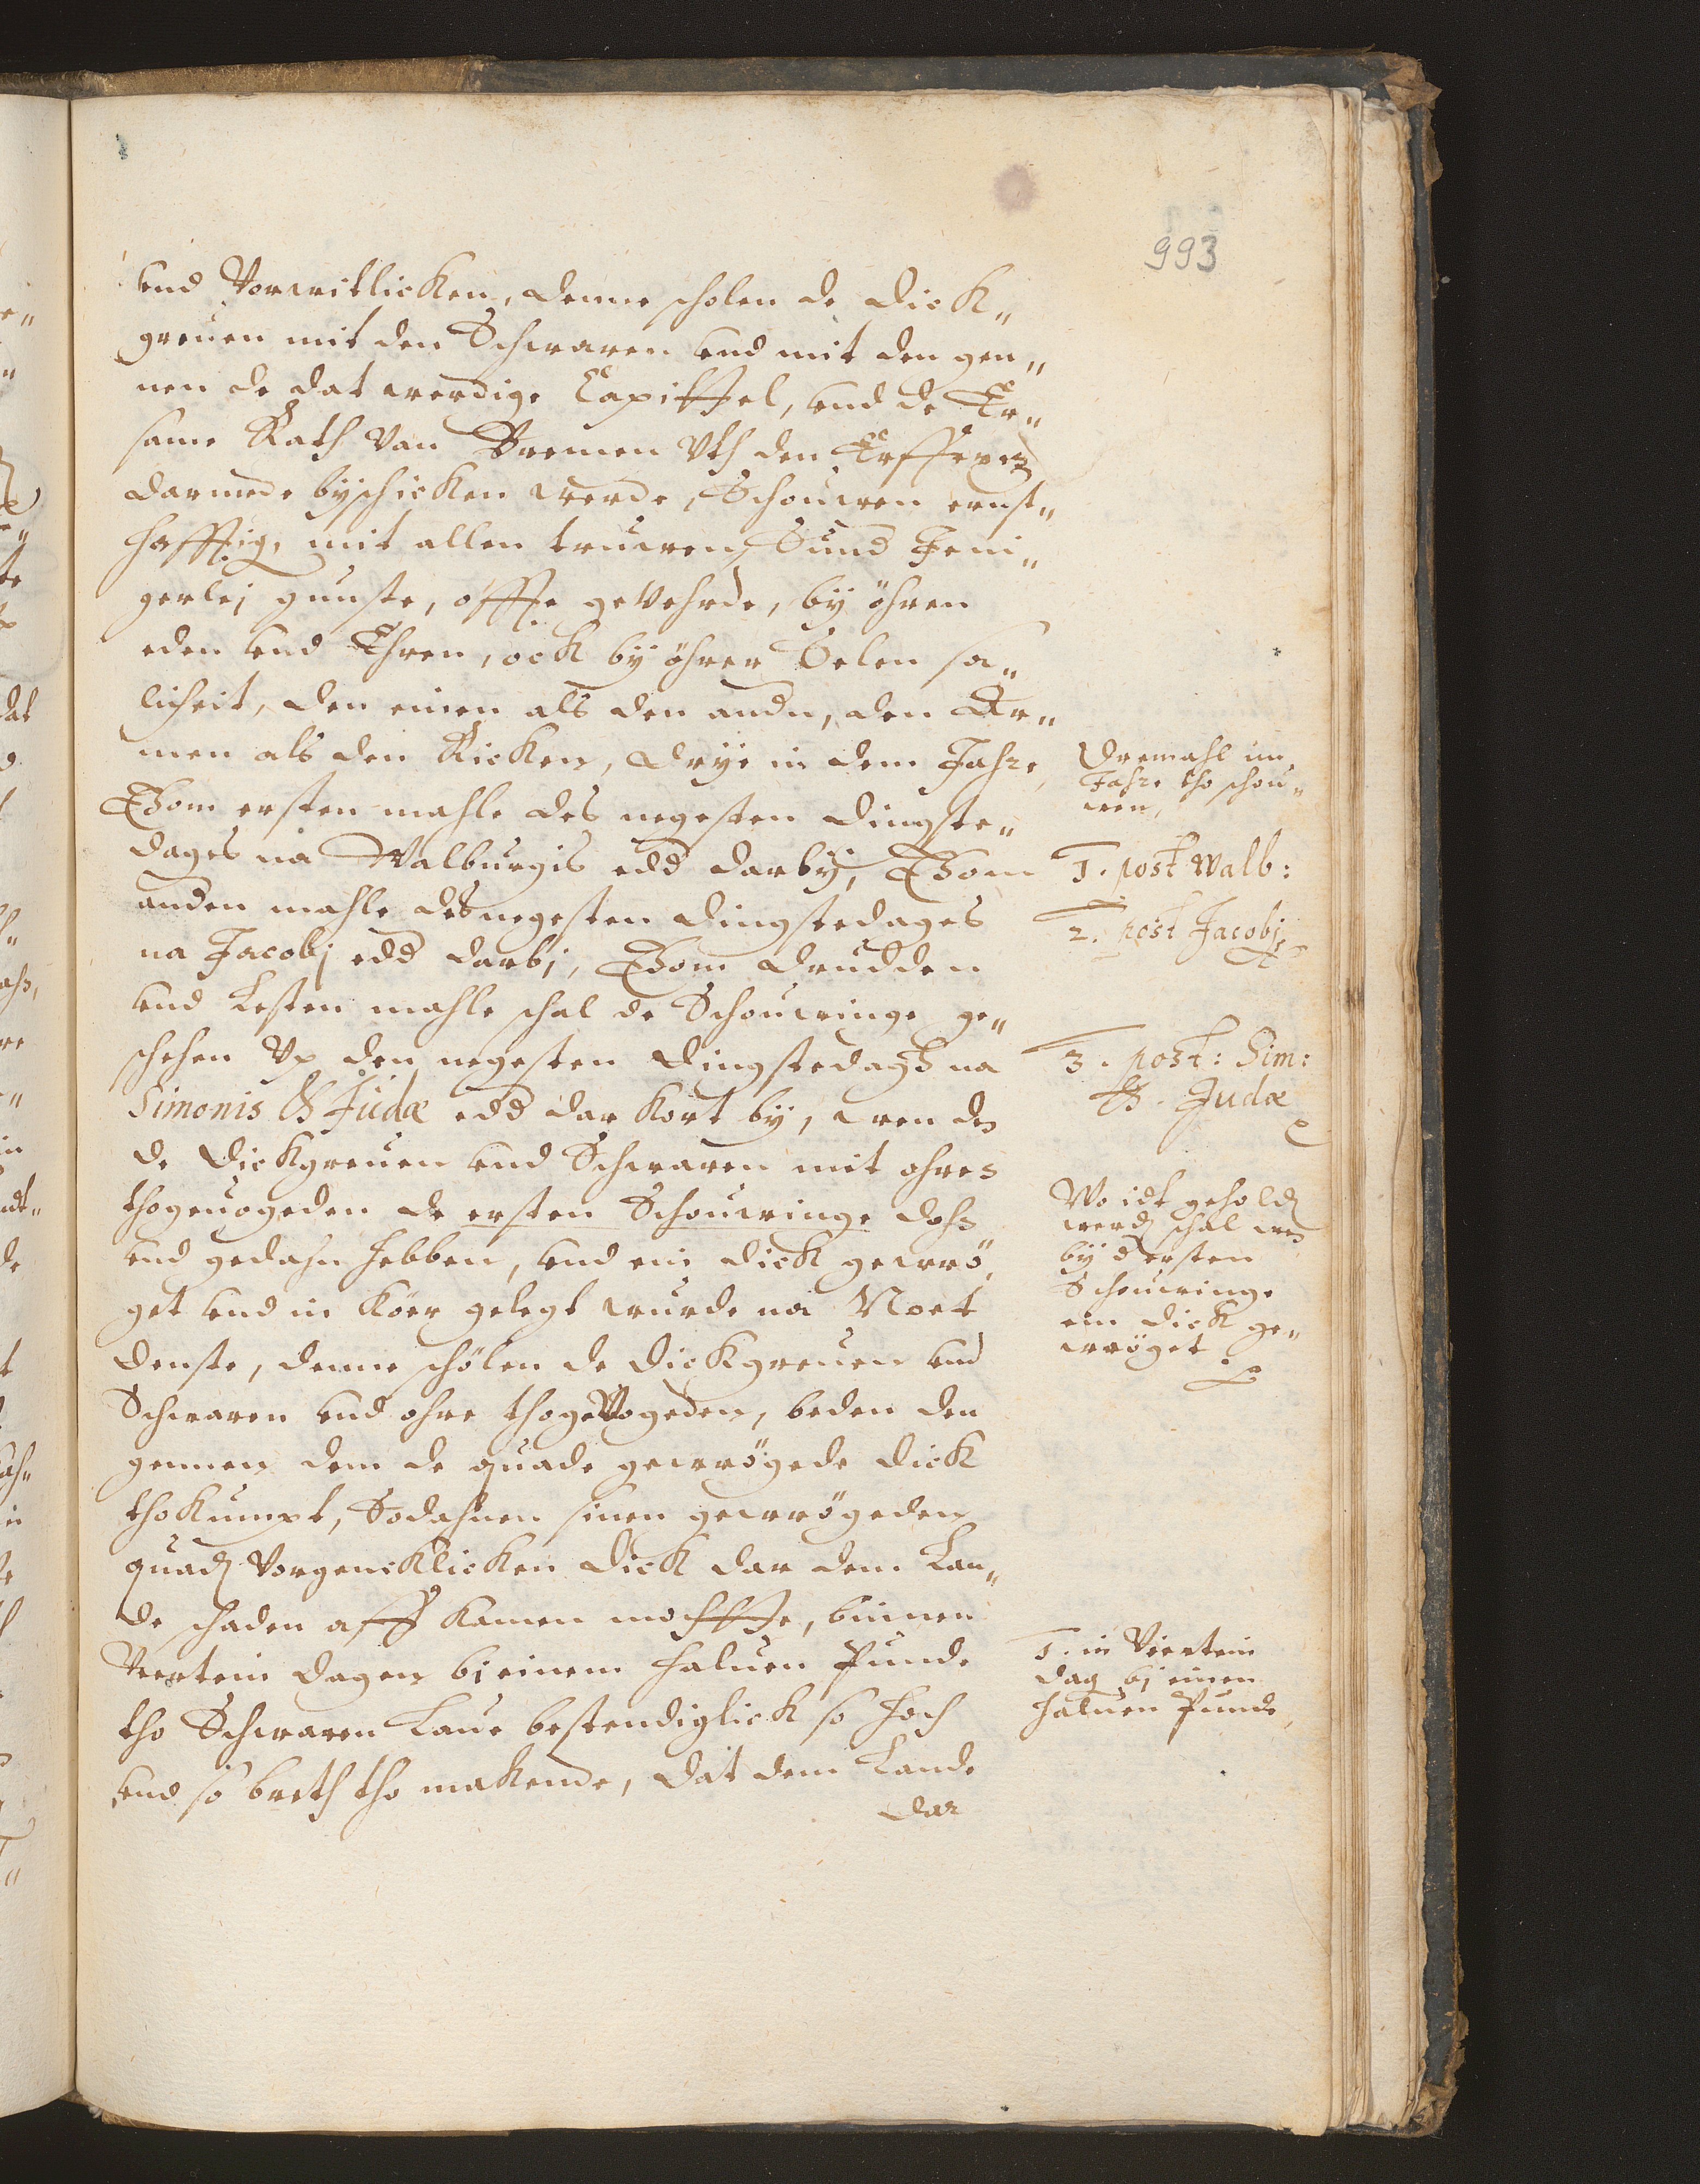 993
vnd Vorwitlicken, denne scholen de Dick„
greuen mit den Schwaren vnd mit den gen„
nen de dat werdige Capittel, vnd de Er„
same Rath van Bremen vth den Erffexen
darmede byschicken werde, Schouwen ernst„
hafftig, mit allen truwen, Sund Jeni„
gerlej gunste, offte gevehrde, by öhren
eden vnd Ehren, ock by öhrer Selen sa„
licheit, den einen als den andn, den Ar„
men als den Ricken, drye in dem Jahre,
Thom ersten mahle des negesten Dingste„
dages na Walburgis edd darby, Thom
anden mahle des negesten Dingstedages
na Jacobj edd darbj, Thom drudden
vnd Lesten mahle schal de Schouwinge ge„
schehen Vp den negesten Dingstedagh na
Simonis & Judæ edd dar kort by, wen de
de Dickgreuen vnd Schwaren mit ohren
thogeuogeden de ersten Schouwinge dohn
vnd gedahn hebben, vnd ein Dick gewrö„
get vnd in Köer gelegt wurde na Noet
denste, denne schölen de Dickgreuen vnd
Schwaren vnd ohre thogeVogeden, beden den
gennen dem de quade gewrögede Dick
thokumpt, Sodahnen sinen gewrögeden
quad Vorgencklicken Dick dar dem Lan„
de schaden aff kamen mochtte, binnen
Veertein dagen bj einem haluen Punde
tho Schwaren Laue bestendiglick so hoch
vnd so breth tho makende, dat dem Lande
dar
Dremahl im
Jahre tho schou„
wen,
1. post Walb:
2. post Jacobj
3. post: Sim:
& Judæ
Wo idt gehold
werd schal wen
by d ersten
Schouwinge
ein Dick ge„
wröget
1. in Viertein
dag bj einen
haluen Punde,